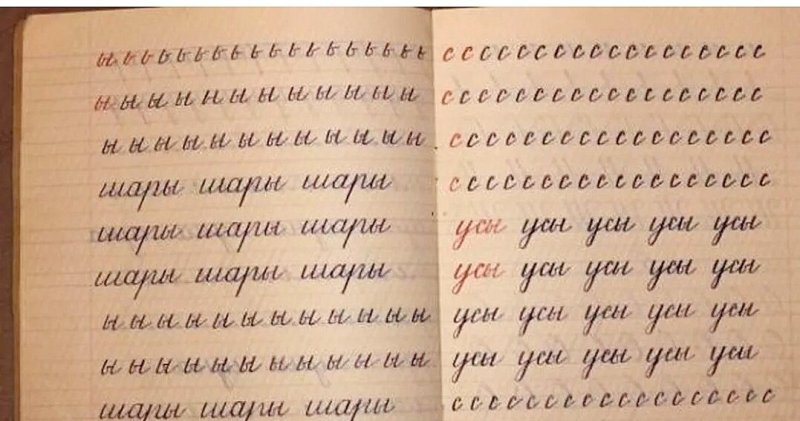 ы ь ь ь ь ь ь ь ь ь ь ь ь ь ь ь ь ь ь
ы ы ы ы ы ы ы ы ы ы ы ы
ы ы ы ы ы ы ы ы ы ы ы ы
шары шары шары
шары шары шары
шары шары шары
ы ы ы ы ы ы ы ы ы ы ы ы
ы ы ы ы ы ы ы ы ы ы ы ы
шары шары шары
с с с с с с с с с с с с с с с с с с
с с с с с с с с с с с с с с с с с с
с с с с с с с с с с с с с с с с с с
с с с с с с с с с с с с с с с с с с
усы усы усы усы усы
усы усы усы усы усы
усы усы усы усы усы
усы усы усы усы усы
с с с с с с с с с с с с с с с с с с